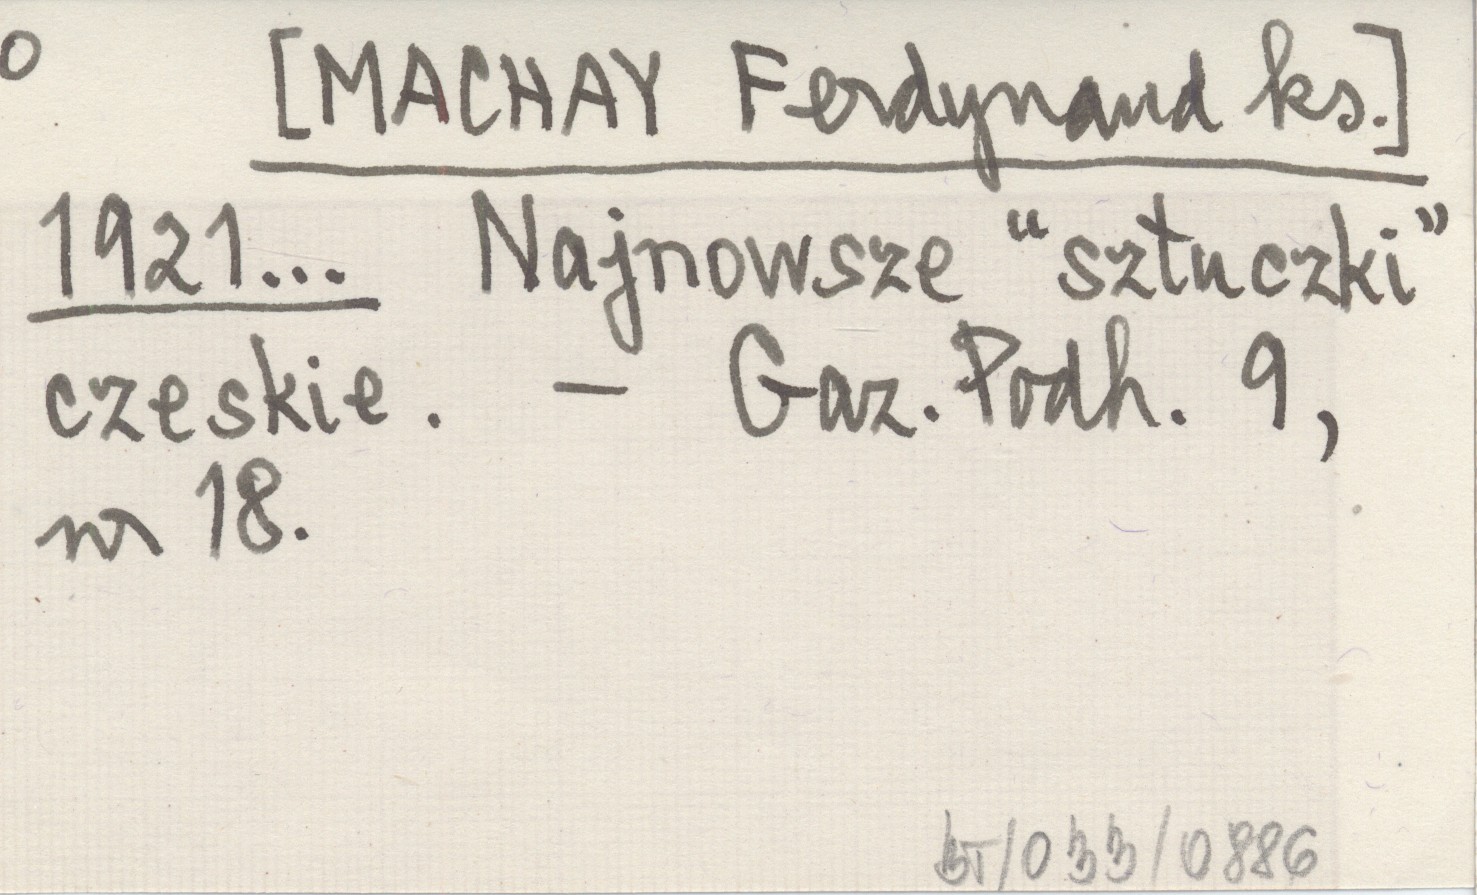 o [MACHAY Ferdynand ks.]
1921... Najnowsze “sztuczki”
czeskie. – Gaz. Podh. 9,
nr 18.
BT/033/0886